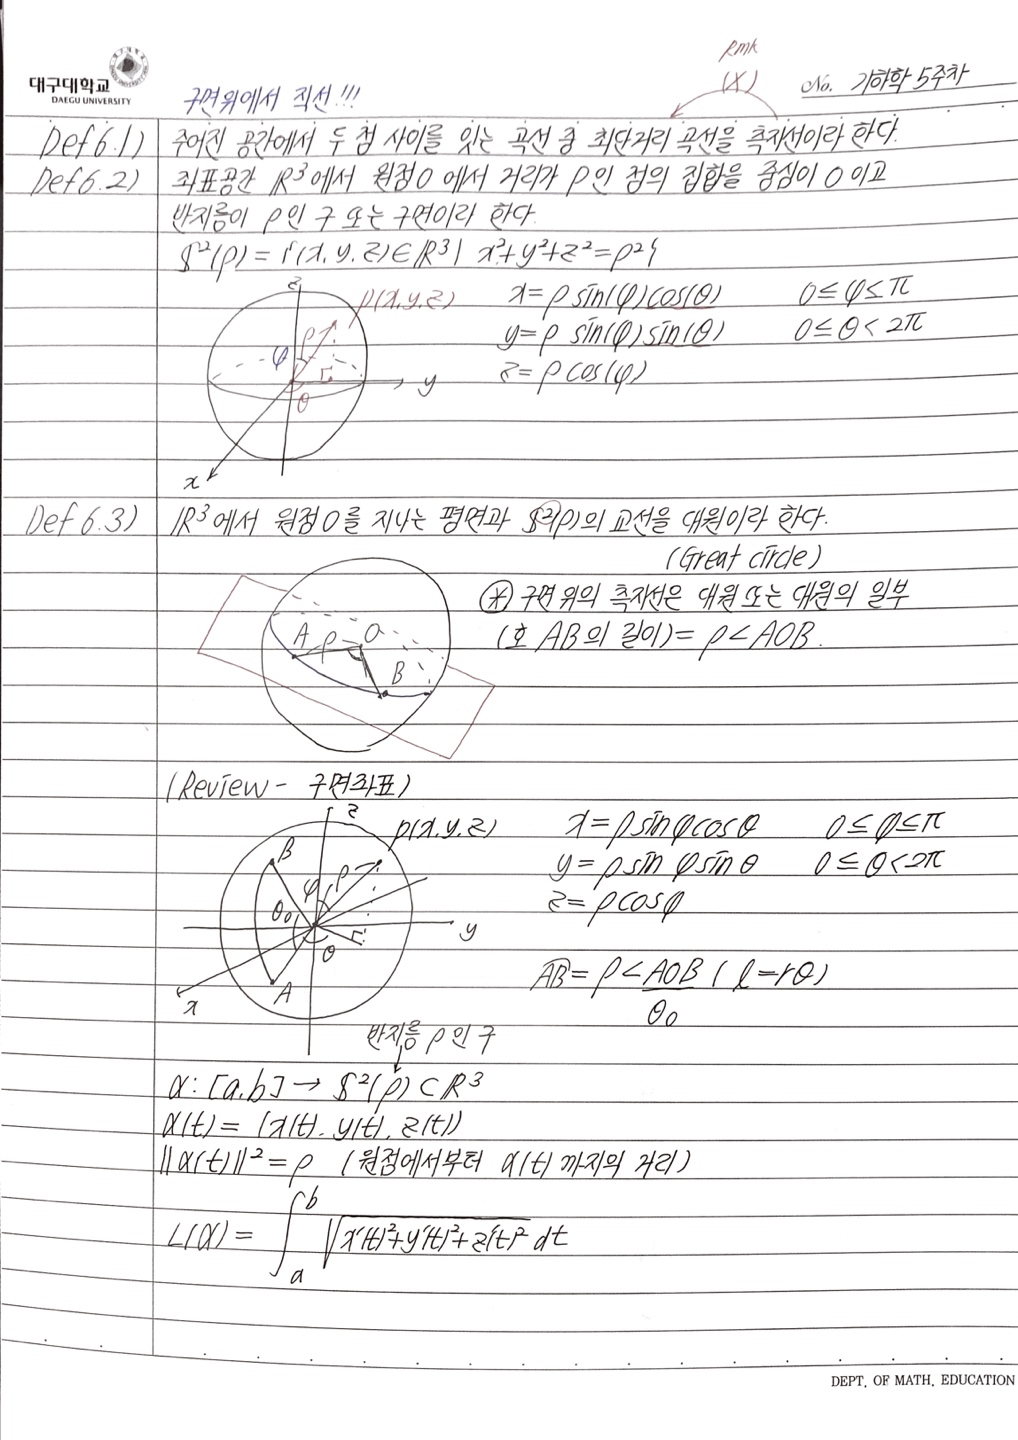 Rmk
(X)
대구대학교
DAEGU UNIVERSITY
No. 기하학 5주차
구면위에서 직선!!!
Def 6.1) 주어진 공간에서 두 점 사이를 잇는 곡선 중 최단거리 곡선을 측지선이라 한다.
Def 6.2) 좌표공간 ℝ³에서 원점 O에서 거리가 ρ인 점의 집합을 중심이 O이고
반지름이 ρ인 구 또는 구면이라 한다.
𝕊²(ρ) = {(x, y, z) ∈ ℝ³ | x²+y²+z²=ρ²}
z
p(x,y,z)
φ
ρ
y
θ
x
x = ρ sin(φ)cos(θ) 0≤φ≤π
y = ρ sin(φ)sin(θ) 0≤θ<2π
z = ρ cos(φ)
Def 6.3) ℝ³에서 원점 O를 지나는 평면과 𝕊²(ρ)의 교선을 대원이라 한다.
(Great circle)
A ρ O
B
(*) 구면 위의 측지선은 대원 또는 대원의 일부
(호 AB의 길이) = ρ∠AOB.
(Review - 구면좌표)
z
p(x,y,z)
B
φ
ρ
θ₀
θ
y
A
x
x = ρ sinφ cosθ 0≤φ≤π
y = ρ sin φ sin θ 0≤θ<2π
z = ρ cosφ
AB = ρ∠AOB (l=rθ)
θ₀
반지름 ρ인 구
α: [a,b] → 𝕊²(ρ) ⊂ ℝ³
α(t) = (x(t), y(t), z(t))
||α(t)||² = ρ (원점에서부터 α(t)까지의 거리)
L(α) = ∫ₐᵇ √(x'(t)²+y'(t)²+z'(t)²) dt
DEPT. OF MATH. EDUCATION